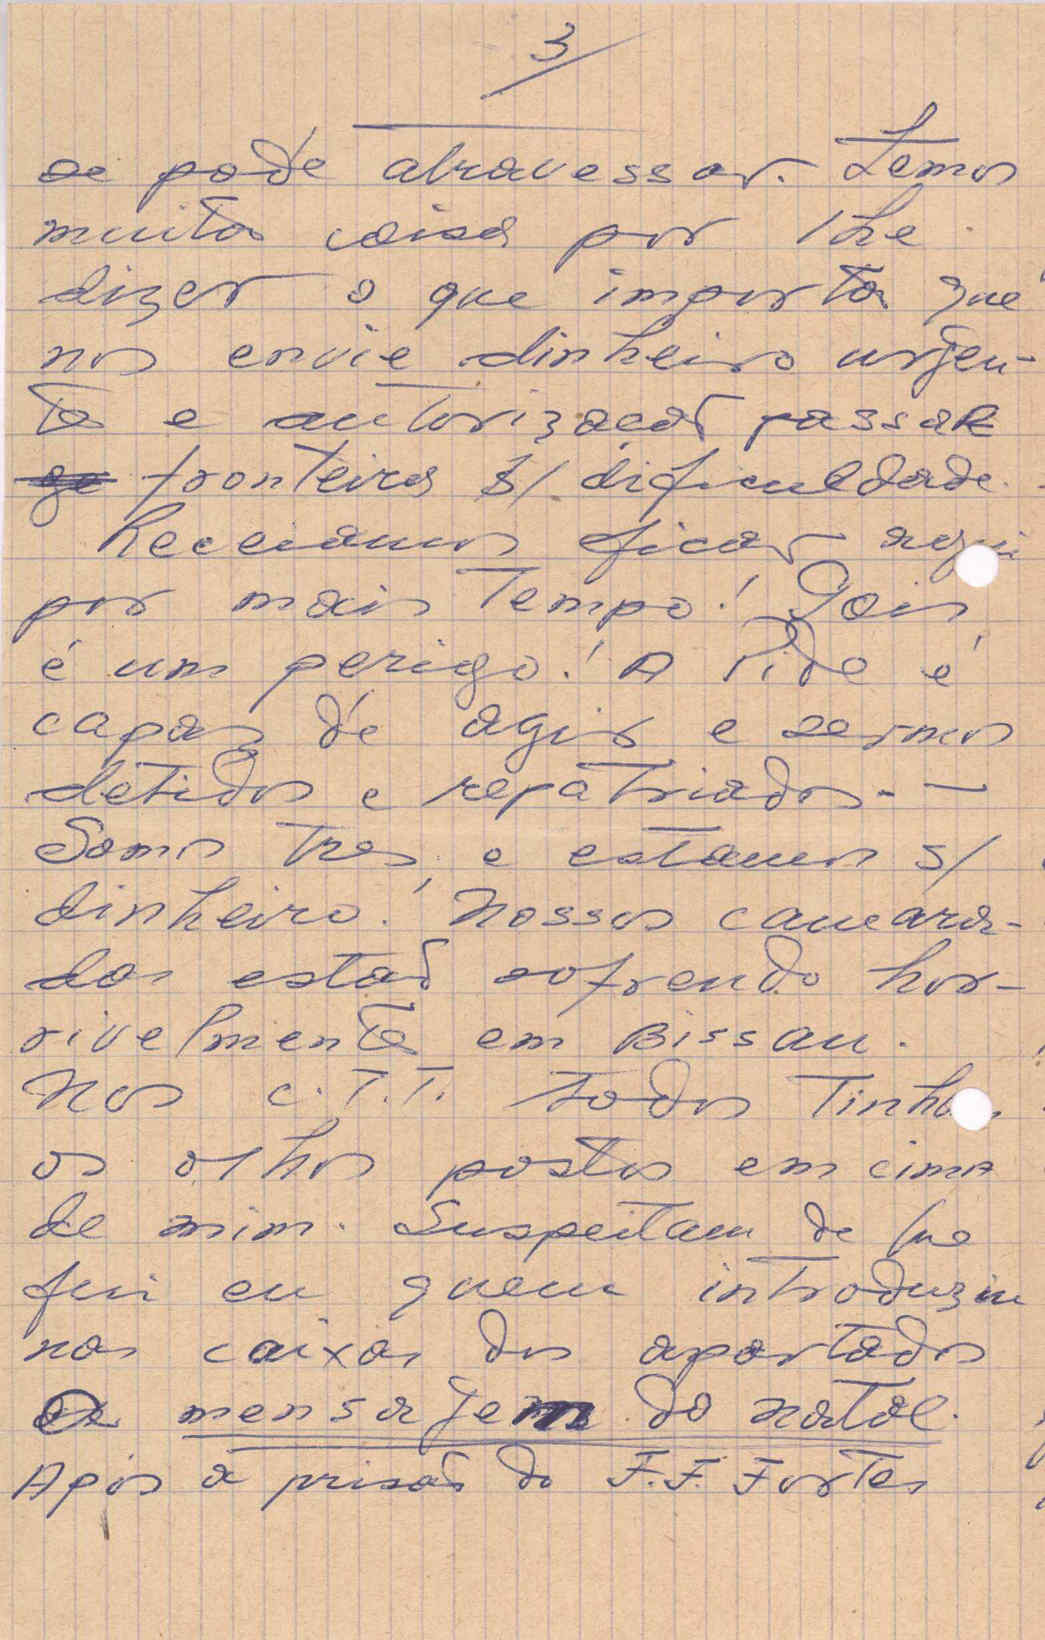 3/
se pode atravessar. Temos
muita coisa por lhe
dizer o que importa que
nos envie dinheiro urgen-
te e autorizaçaõ passar
fronteira s/ dificuldade.
Receiamos ficar aqui
por mais tempo! Pois
é um perigo! A Pide é
capaz de agir e sermos
detidos e repatriados. -
Somos tres e estamos s/
dinheiro! Nossos camara-
das estaõ sofrendo hor-
rivelmente em Bissau.
Nos C.T.T. todos tinham
os olhos postos em cima
de mim. Suspeitam de que
fui eu quem introduziu
nas caixas dos apartados
a mensagem do natal.
Após a prisaõ do F.F. Fortes